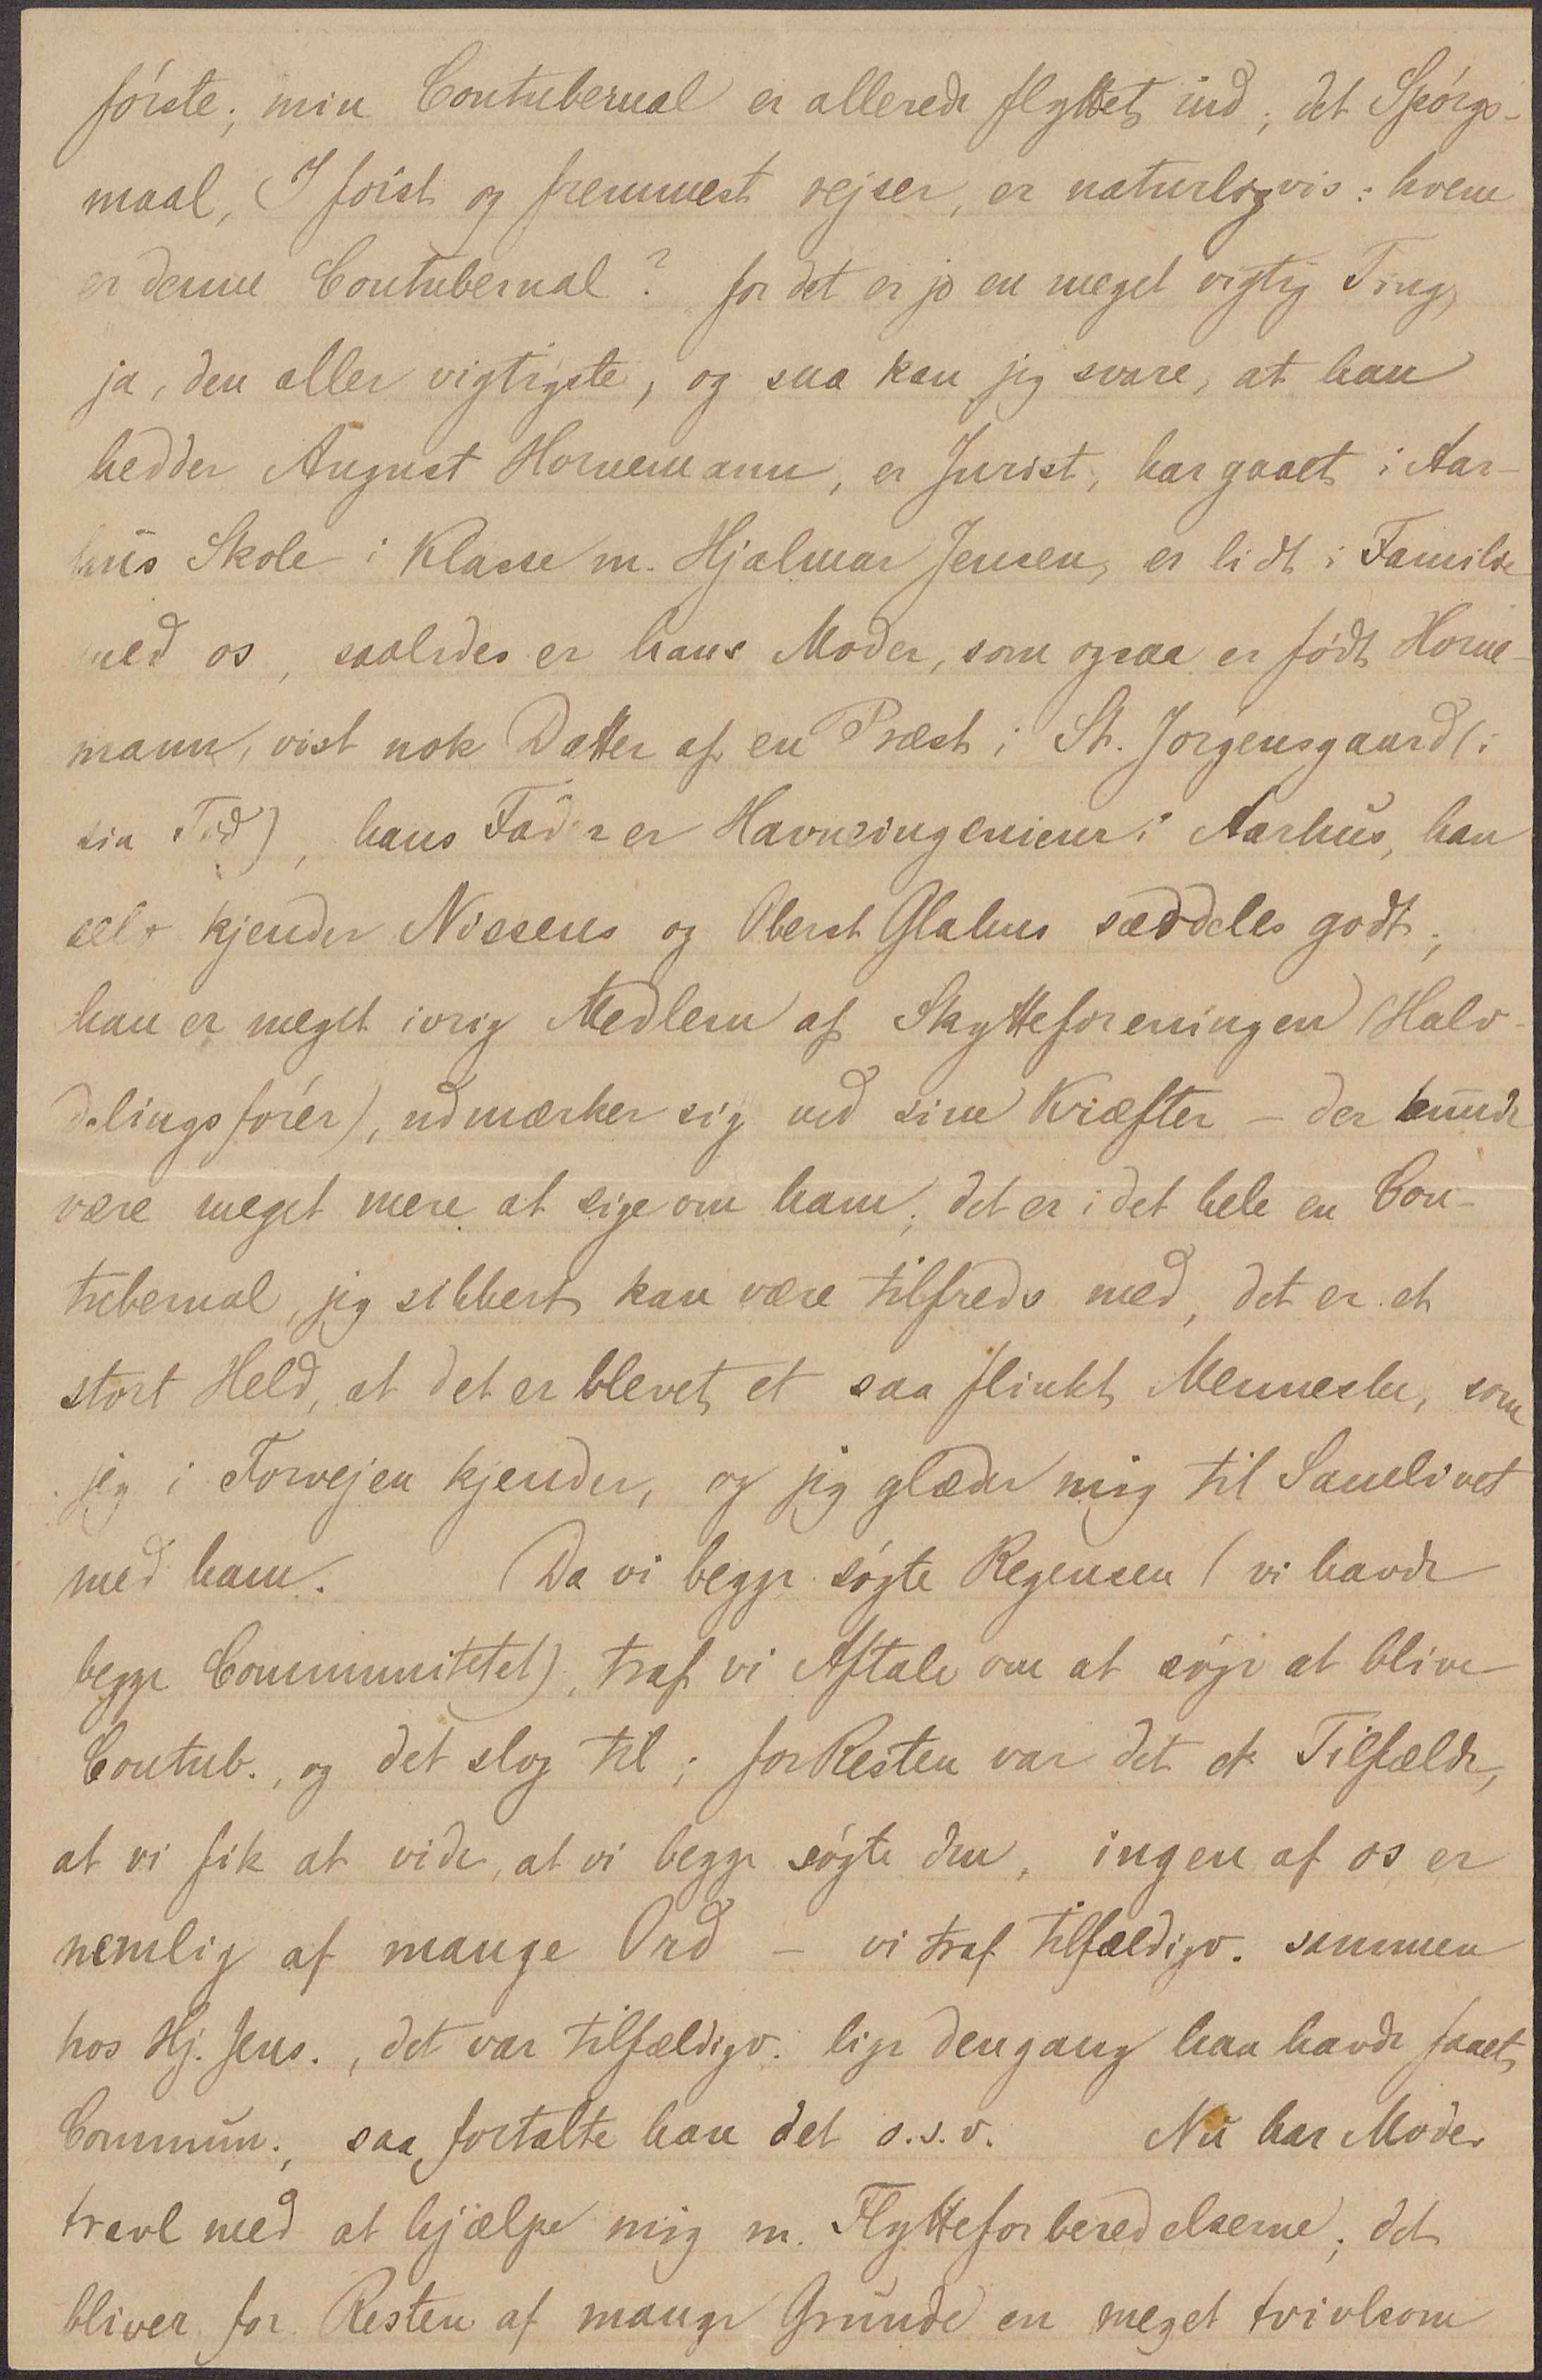 første; min Contubernal er allerede flyttet ind; det Spørgs-
maal, I først og fremmest rejser, er naturligvis: hvem
er denne Contubernal? for det er jo en meget vigtig Ting,
ja, den aller vigtigste, og saa kan jeg svare, at han
hedder August Hornemann, er Jurist, har gaaet i Aar-
hus Skole i Klasse m. Hjalmar Jensen, er lidt i Familie
med os, saaledes er hans Moder, som ogsaa er født Horne-
mann, vist nok Datter af en Præst i St. Jørgensgaard (i
sin Tid), hans Fader er Havneingenieur i Aarhus, han
selv kjender Nissens og Oberst Glahns særdeles godt;
han er meget ivrig Medlem af Skytteforeningen (Halv-
delingsfører), udmærker sig ved sine Kræfter – der kunde
være meget mere at sige om ham; det er i det hele en Con-
tubernal, jeg sikkert kan være tilfreds med, det er et
stort Held, at det er blevet et saa flinkt Menneske, som
jeg i Forvejen kjender, og jeg glæder mig til Samlivet
med ham. Da vi begge søgte Regensen (vi havde
begge Communitetet), traf vi Aftale om at søge at blive
Contub., og det slog til; for Resten var det et Tilfælde,
at vi fik at vide, at vi begge søgte den, ingen af os er
nemlig af mange Ord – vi traf tilfældigv. sammen
hos Hj. Jens., det var tilfældigv. lige dengang han havde faaet
Commun., saa fortalte han det o.s.v. Nu har Moder
travl med at hjælpe mig m. Flytteforberedelserne; det
bliver for Resten af mange Grunde en meget tvivlsom